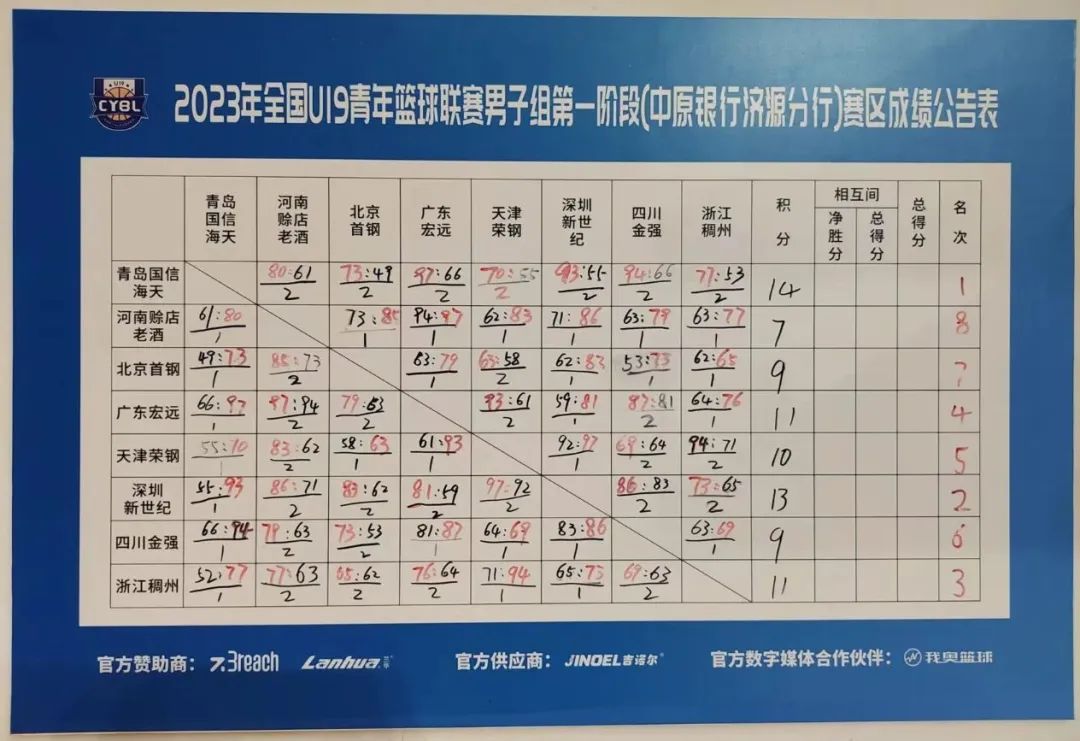 U19
CYBL
2023年全国U19青年篮球联赛男子组第一阶段(中原银行济源分行)赛区成绩公告表
青岛国信海天 河南赊店老酒 北京首钢 广东宏远 天津荣钢 深圳新世纪 四川金强 浙江稠州 积分 相互间 净胜分 总得分 总得分 名次
青岛国信海天 80:61 2 73:49 2 97:66 2 70:55 2 93:55 2 94:66 2 77:53 2 14 1
河南赊店老酒 61:80 1 73:85 1 94:97 1 62:83 1 71:86 1 63:79 1 63:77 1 7 8
北京首钢 49:73 1 85:73 2 63:79 1 63:58 2 62:83 1 53:73 1 62:65 1 9 7
广东宏远 66:97 1 97:94 2 79:63 2 93:61 2 59:81 1 87:81 2 64:76 1 11 4
天津荣钢 55:70 1 83:62 2 58:63 1 61:93 1 92:97 1 69:64 2 94:71 2 10 5
深圳新世纪 55:93 1 86:71 2 83:62 2 81:59 2 97:92 2 86:83 2 73:65 2 13 2
四川金强 66:94 1 79:63 2 73:53 2 81:87 1 64:69 1 83:86 1 63:69 1 9 6
浙江稠州 52:77 1 77:63 2 65:62 2 76:64 2 71:94 1 65:73 1 69:63 2 11 3
官方赞助商： 3reach Lanhua 官方供应商： JINOEL吉诺尔 官方数字媒体合作伙伴： 我奥篮球